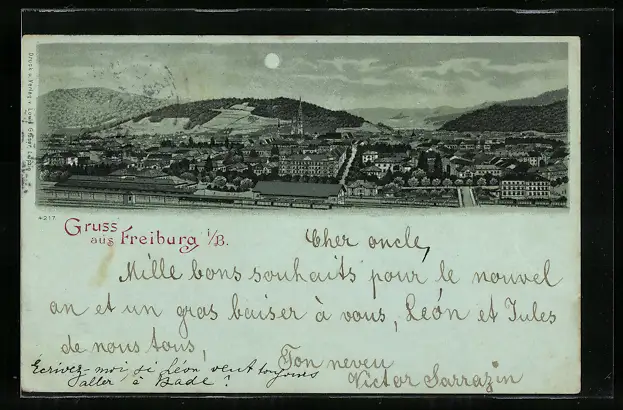 Gruss
aus Freiburg i/B.
4217
Cher oncle,
Mille bons souhaits pour le nouvel
an et un gros baiser à vous, Léon et Jules
de nous tous,
Ton neveu
Victor Sarrazin
Ecrivez-moi si Léon veut toujours
aller à Bade?
Druck u. Verlag v. Louis